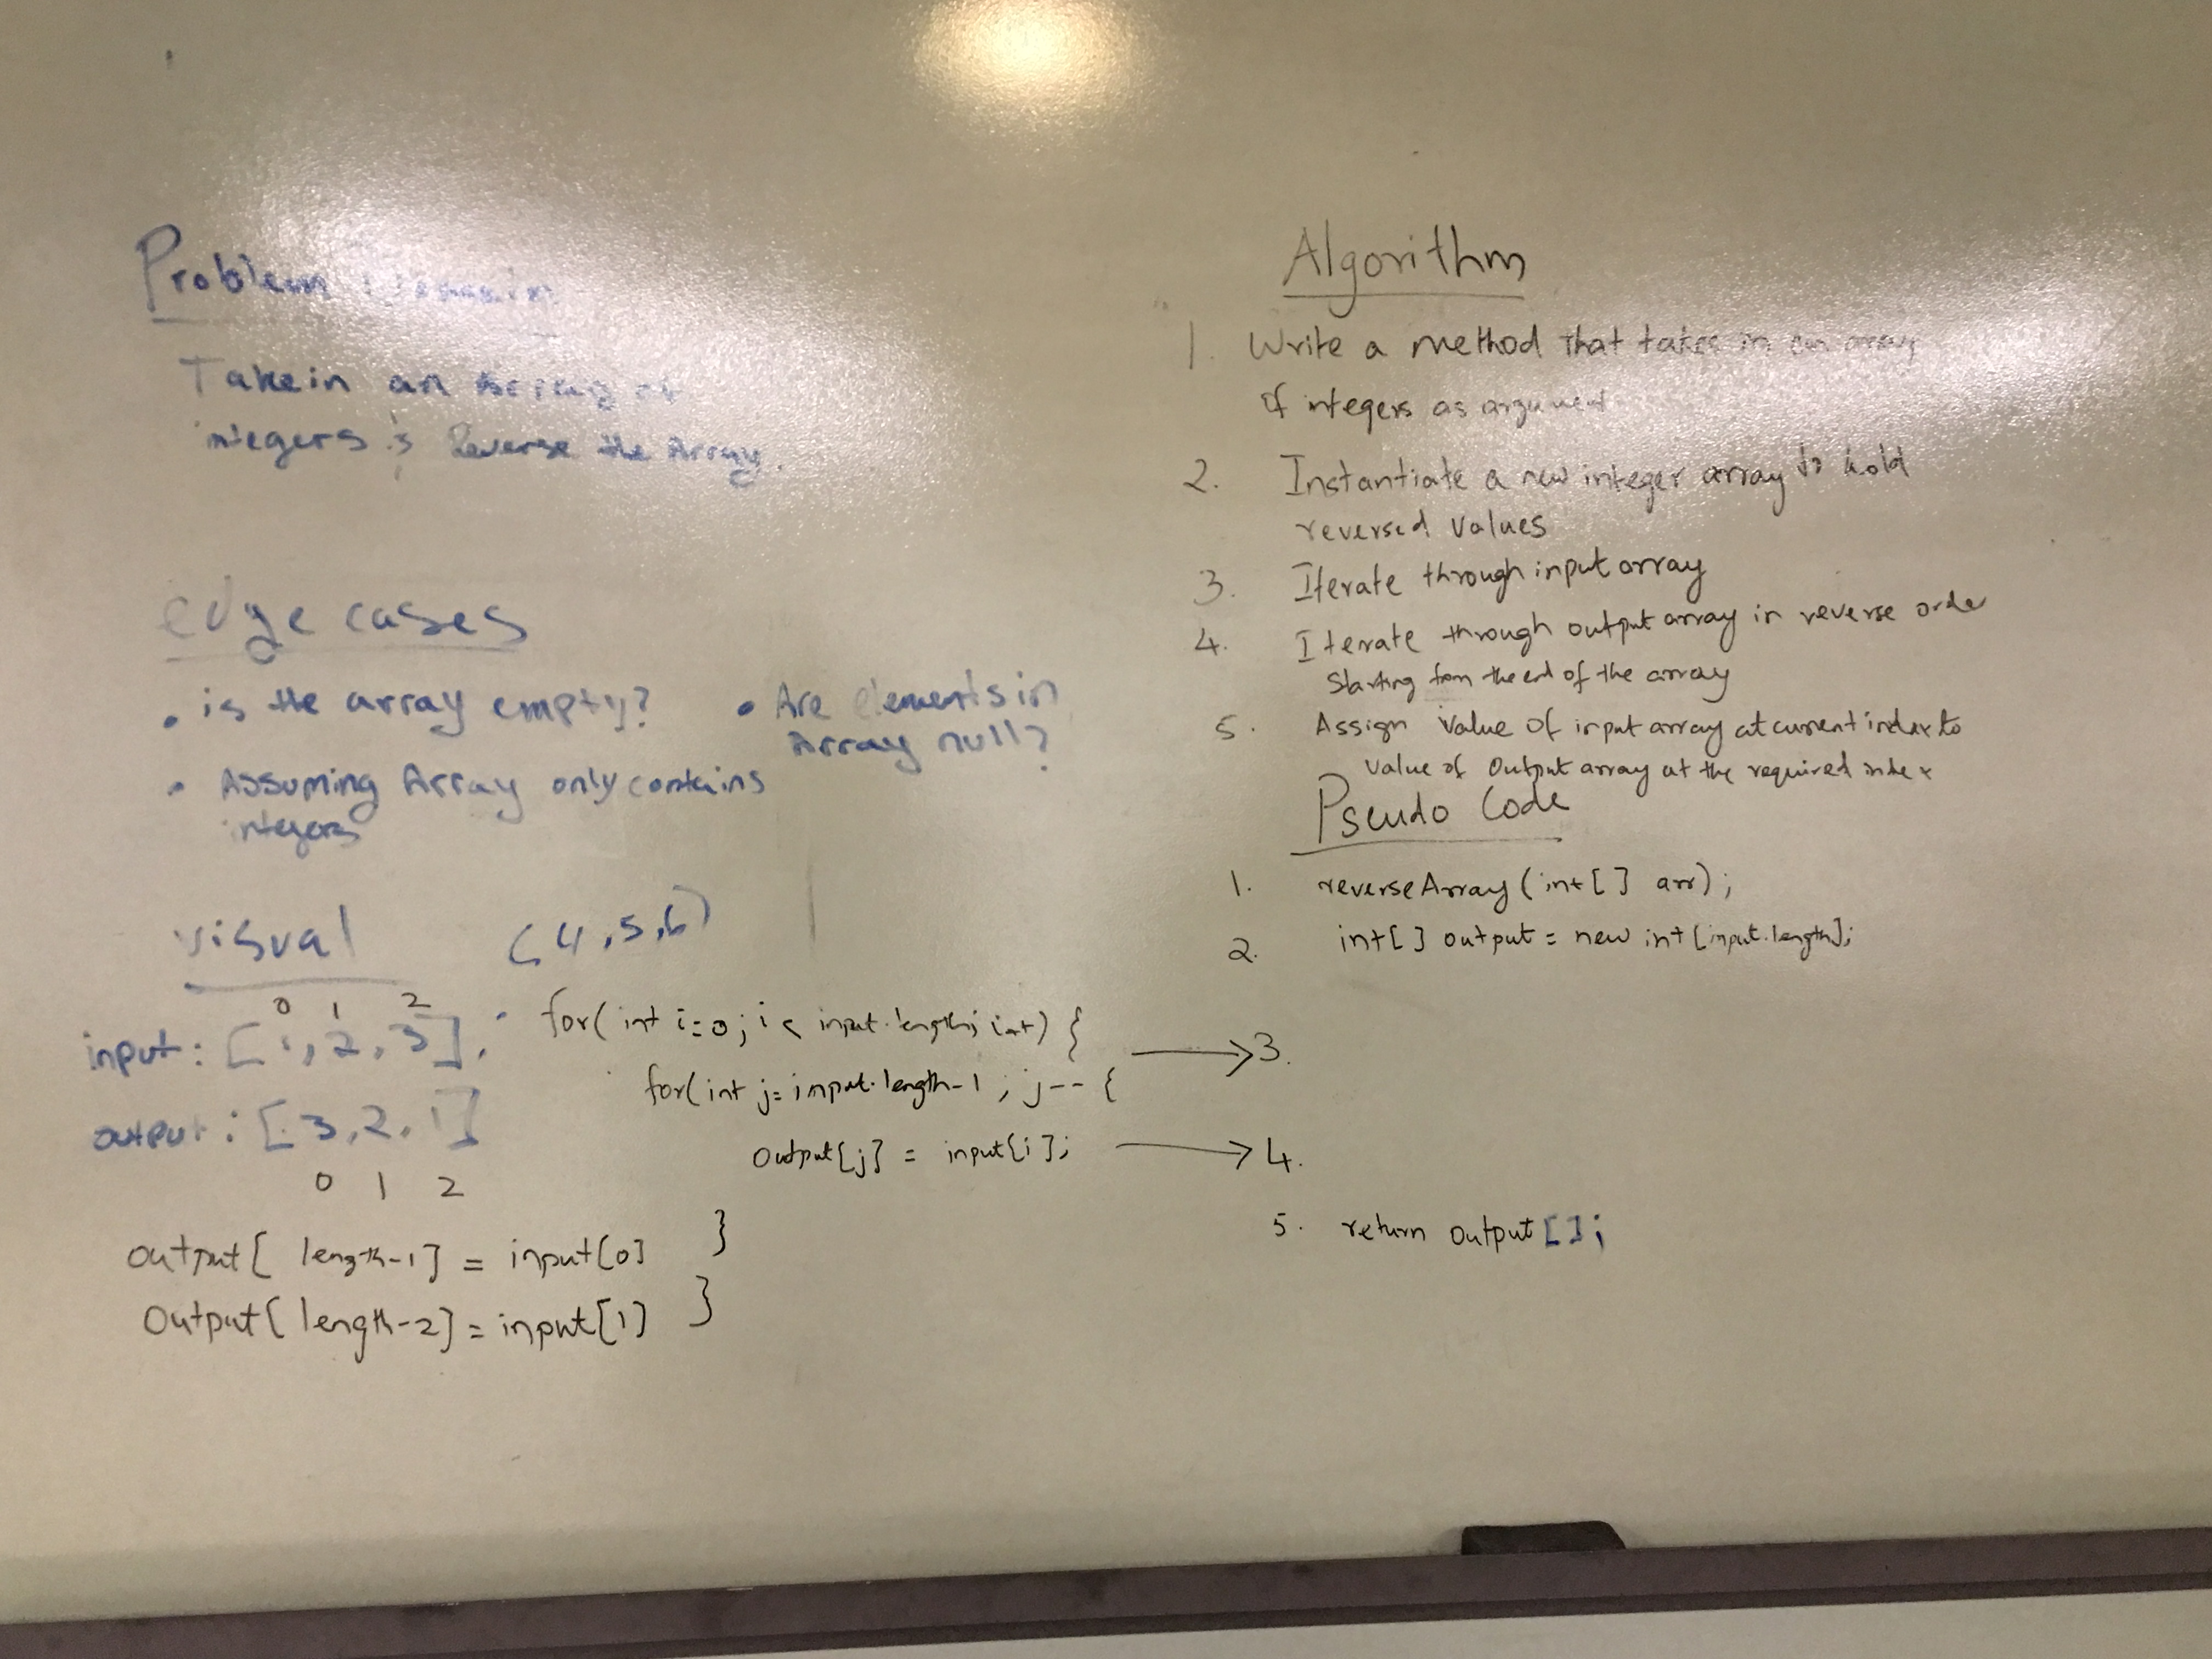 Problem Domain
Take in an Array of
integers & Reverse the Array.
edge cases
• is the array empty?
• Are elements in
Array null?
• Assuming Array only contains
integers
visual
(4,5,6)
0 1 2
input: [1,2,3].
output: [3,2,1]
0 1 2
output[ length-1] = input[0]
Output[ length-2] = input[1]
Algorithm
1. Write a method that takes in an array
of integers as argument
2. Instantiate a new integer array to hold
reversed values
3. Iterate through input array
4. Iterate through output array in reverse order
Starting from the end of the array
5. Assign value of input array at current index to
value of output array at the required index
Pseudo Code
1. reverseArray(int[] arr);
2. int[] output = new int[input.length];
for(int i=0; i< input.length; i++) {
→ 3.
for(int j= input.length-1 ; j-- {
Output[j] = input[i]; → 4.
}
}
5. return output[];